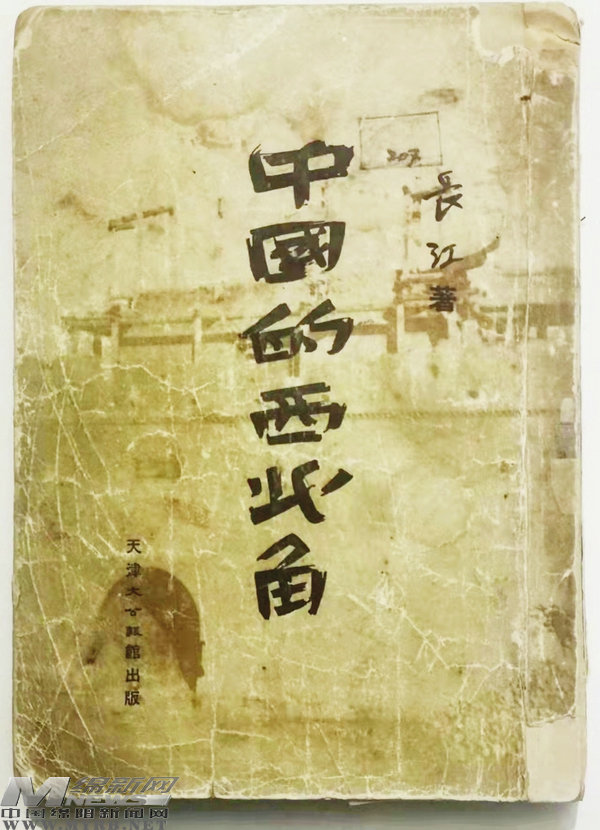 207
長江著
中國的西北角
天津大公報館出版
绵新网
MNEWS
中国绵阳新闻网
WWW.MYRB.NET